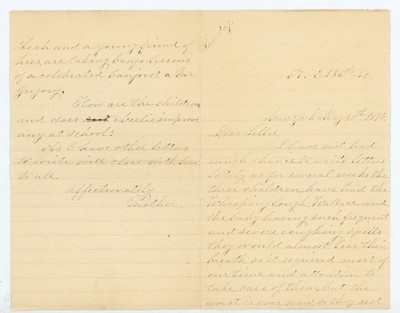 Leah and a young friend of
hers are taking banjo lessons
of a celebrated banjoist a Mr
Gregory.
How are the children
and does Leslie improve
any at school?
As I have other letters
to write will close with love
to all.
Affectionately
Mother.
57. E 86th St.
New York May
Dear Lillie
I have not had
much chance to write letters
lately, as for several weeks the
three children have had the
Whooping Cough, Wallace and
the baby having such frequent
and severe coughing spells
they would almost lose their
breath so it required most of
our time and attention to
take care of them, but the
worst is over now, so they rest